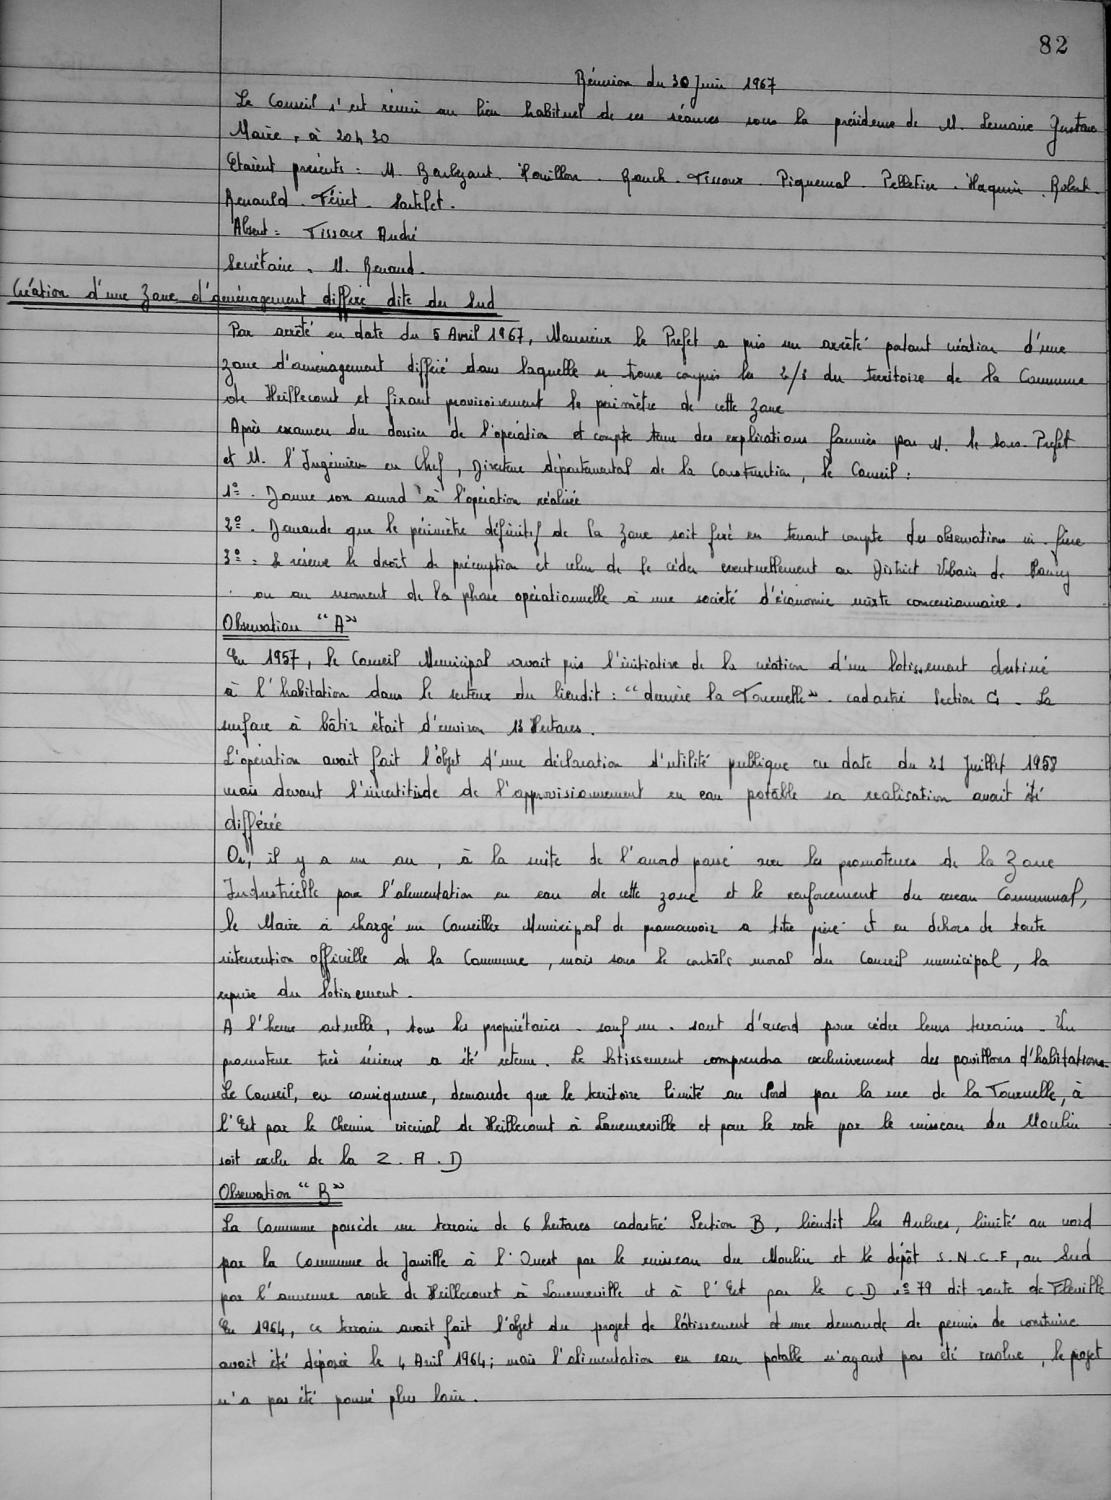 82
Réunion du 30 Juin 1967
Le Conseil s'est réuni au lieu habituel de ses séances sous la présidence de M. Lemaire Gustave
Maire, à 20h30
Etaient présents : M. Barbezant. Houillon. Rauch. Tissoux. Piquemal. Pelletier. Haquin. Robert.
Renauld. Fériet. Sartelet.
Absent : Tissoux André
Secrétaire. M. Renaud.
Création d'une Zone d'aménagement différé dite du Sud
Par arrêté en date du 5 Avril 1967, Monsieur le Préfet a pris un arrêté portant création d'une
zone d'aménagement différé dans laquelle se trouve compris les 2/3 du territoire de la Commune
de Heillecourt et fixant provisoirement le périmètre de cette Zone
Après examen du dossier de l'opération et compte tenu des explications fournies par M. le Sous-Préfet
et M. l'Ingénieur en Chef, Directeur départemental de la Construction, le Conseil :
1º. Donne son accord à l'opération réalisée
2º. Demande que le périmètre définitif de la Zone soit fixé en tenant compte des observations in-fine
3º. Se réserve le droit de préemption et celui de le céder éventuellement au District Urbain de Nancy
ou au moment de la phase opérationnelle à une société d'économie mixte concessionnaire.
Observation "A"
En 1957, le Conseil Municipal avait pris l'initiative de la création d'un lotissement destiné
à l'habitation dans le secteur du lieudit : "derrière la Tournelle". cadastré Section G. La
surface à bâtir était d'environ 13 Hectares.
L'opération avait fait l'objet d'une déclaration d'utilité publique en date du 21 Juillet 1958
mais devant l'incertitude de l'approvisionnement en eau potable sa réalisation avait été
différée
Or, il y a un an, à la suite de l'accord passé avec les promoteurs de la Zone
Industrielle pour l'alimentation en eau de cette zone et le renforcement du réseau Communal,
le Maire a chargé un Conseiller Municipal de promouvoir a titre privé et en dehors de toute
intervention officielle de la Commune, mais sous le contrôle moral du Conseil municipal, la
reprise du lotissement.
A l'heure actuelle, tous les propriétaires - sauf un - sont d'accord pour céder leurs terrains. Un
promoteur très sérieux a été retenu. Le lotissement comprendra exclusivement des pavillons d'habitations.
Le Conseil, en conséquence, demande que le territoire limité au Nord par la rue de la Tournelle, à
l'Est par le Chemin vicinal de Heillecourt à Laneuveville et pour le reste par le ruisseau du Moulin
soit exclu de la Z.A.D
Observation "B"
La Commune possède un terrain de 6 hectares cadastré Section B, lieudit les Aulnes, limité au nord
par la Commune de Jarville à l'Ouest par le ruisseau du Moulin et le dépôt S.N.C.F, au Sud
par l'ancienne route de Heillecourt à Laneuveville et à l'Est par le C.D nº 79 dit route de Fléville
En 1964, ce terrain avait fait l'objet du projet de lotissement et une demande de permis de construire
avait été déposée le 4 Avril 1964; mais l'alimentation en eau potable n'ayant pas été résolue, le projet
n'a pas été poussé plus loin.